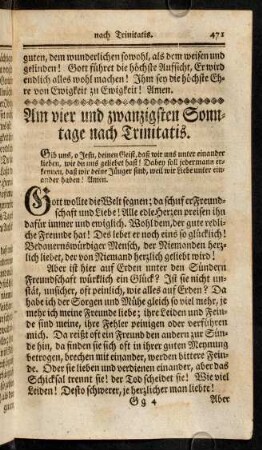 nach Trinitatis. 471
guten, dem wunderlichen sowohl, als dem weisen und
gelinden! Gott führet die höchste Aufsicht, Er wird
endlich alles wohl machen! Ihm sey die höchste Eh-
re von Ewigkeit zu Ewigkeit! Amen.
Am vier und zwanzigsten Sonn-
tage nach Trinitatis.
Gib uns, o Jesu, deinen Geist, daß wir uns unter einander
lieben, wie du uns geliebet hast! Dabey soll jedermann er-
kennen, daß wir deine Jünger sind, weil wir Liebe unter ein-
ander haben! Amen.
Gott wollte die Welt segnen; da schuf er Freund-
schaft und Liebe! Alle edle Herzen preisen ihn
dafür immer und ewiglich. Wohl dem, der gute redli-
che Freunde hat! Des lebet er noch eins so glücklich!
Bedauernswürdiger Mensch, der Niemanden herz-
lich liebet, der von Niemand herzlich geliebt wird!
Aber ist hier auf Erden unter den Sündern
Freundschaft wirklich ein Glück? Ist sie nicht un-
stät, unsicher, oft peinlich, mit alle dem Guten? Da
habe ich der Sorgen und Mühe gleich so viel mehr, je
mehr ich meine Freunde liebe; ihre Leiden und Fein-
de sind meine, ihre Fehler peinigen oder verführen
mich. Da reißt oft ein Freund den andern zur Sün-
de hin, da finden sie sich oft in ihrer guten Meynung
betrogen, brechen mit einander, werden bittere Fein-
de. Oder sie lieben und verdienen einander, aber das
Schicksal trennt sie! der Tod scheidet sie! Wie viel
Leiden! Desto schwerer, je herzlicher man liebte!
G g 4 Aber